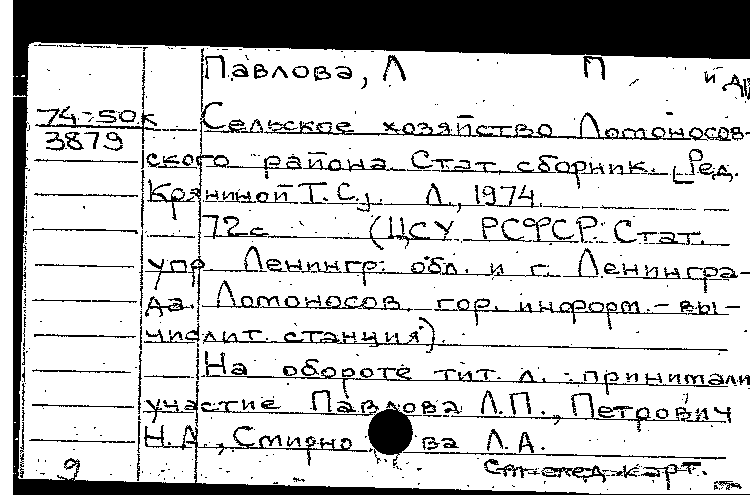 Павлова, Л П и др
74-50к Сельское хозяйство Ломоносов-
3879
ского района. Стат. сборник. [Ред.
Кряниной Т.С.]. Л., 1974
72с (ЦСУ РСФСР. Стат.
упр. Ленингр. обл. и г. Ленингра-
да. Ломоносов. гор. информ.-вы-
числит. станция).
На обороте тит. л.: принимали
участие Павлова Л.П., Петрович
Н.А., Смирнова Л.А.
9 См след карт.